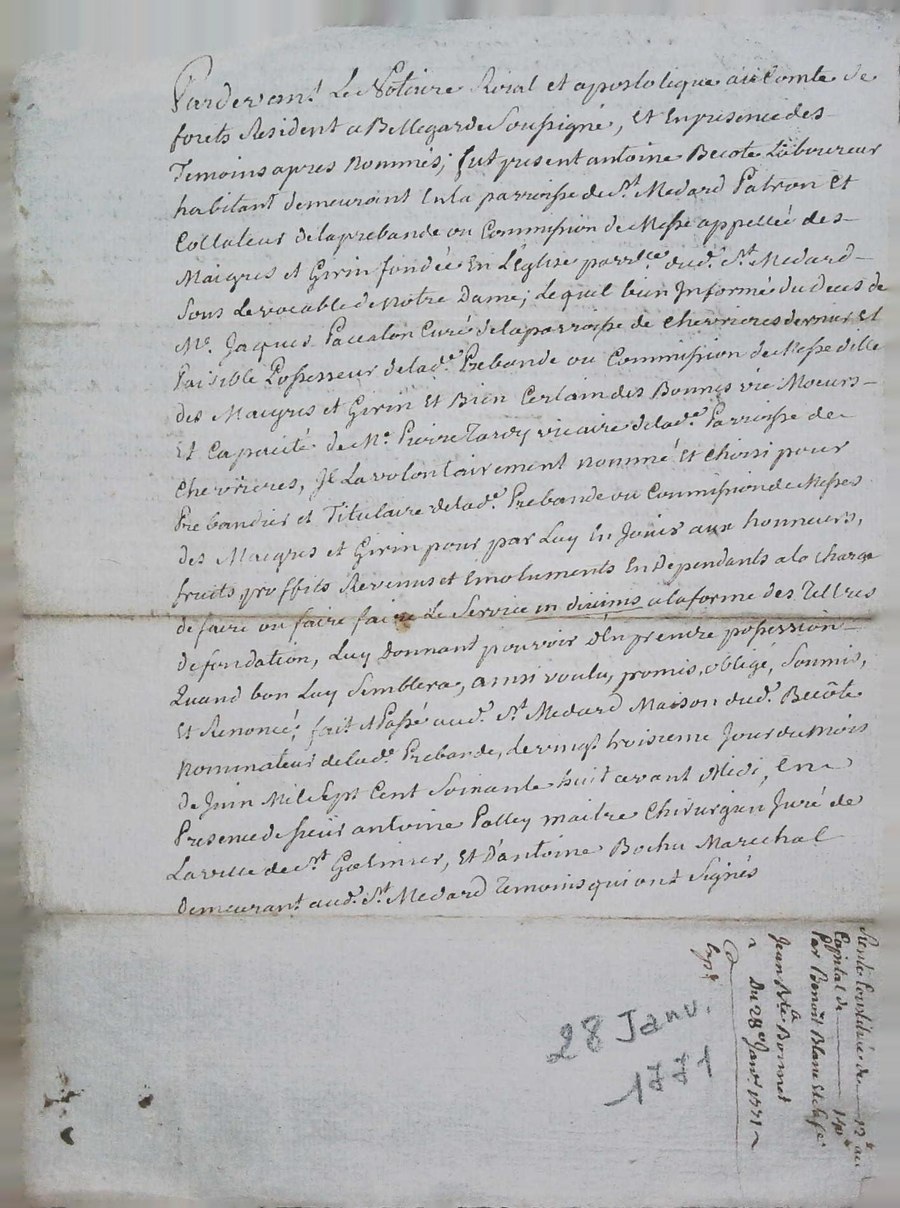 Pardevant Le Notaire Roial et apostolique au Comte de
forets Resident a Bellegarde Soussigné, et En presence des
Temoins apres nommés; fut present antoine Becote Laboureur
habitant demeurant En la parroisse de St. Medard Patron et
Collateur de la prebande ou Commission de Messe appellée des
Maigres et Girin fondée En L'Eglise parrlle. dud. St. Medard
Sous Le vocable de Notre Dame; Lequel bien Informé du deces de
Me. Jaques Paccalon Curé de la parroisse de Chevrieres dernier Et
Paisible Possesseur de lade. Prebande ou Commission de Messe ditte
des Maigres et Girin Et Bien Certain des Bonnes vie Moeurs
Et Capacité de Me. Pierre Tardy vicaire de lade. Parroisse de
Chevrieres, Il La volontairement nommé Et Choisi pour
Prebandier et Titulaire de lade. Prebande ou Commission de Messes
des Maigres et Girin pour par Luy En Jouir aux honneurs,
fruits proffits Revenus et Emoluments En Dependants a la charge
de faire ou faire faire Le Service in divinis a la forme des Tiltres
de fondation, Luy Donnant pouvoir d'En prendre possession
Quand bon Luy Semblera, ainsi voulu, promis, obligé, Soumis,
Et Renoncé; fait et Passé aud. St. Medard Maison dud. Becôte
Nominateur de lade. Prebande, Le vingt troisieme Jour du Mois
de Juin Mil Sept Cent Soixante huit avant Midi, En
Presence de sieur antoine Palley maitre Chirurgien Juré de
La ville de St. Galmier, Et D'antoine Bochu Marechal
Demeurant aud. St. Medard Temoins qui ont Signés
Rente Constituée de 12# au
Capital de 240#
Par Benoît Blanc
Jean Bte Bonnet
Du 28e Janr 1771
28 Janv.
1771